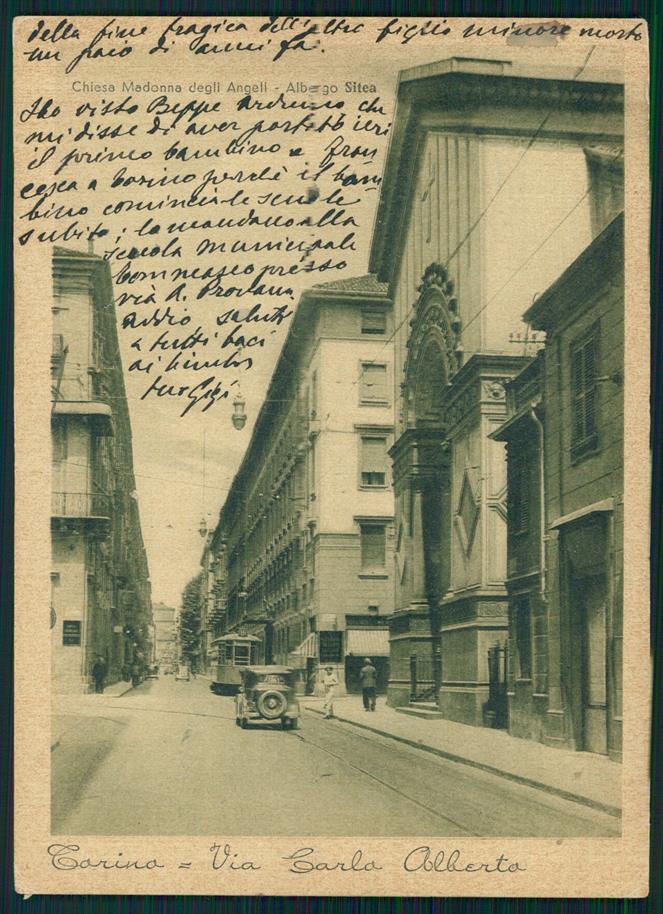 della fine tragica dell'altro figlio minore morto
un paio di anni fa.
Chiesa Madonna degli Angeli - Albergo Sitea
Ho visto Beppe Arduino che
mi disse di aver portato ieri
il primo bambino e Fran
cesca a Torino perchè il bam
bino comincia le scuole
subito; lo mandano alla
scuola Municipale
Tommaseo presso
via A. Provana
Addio saluti
a tutti baci
ai bimbi
tuo Gigi
Torino = Via Carlo Alberto